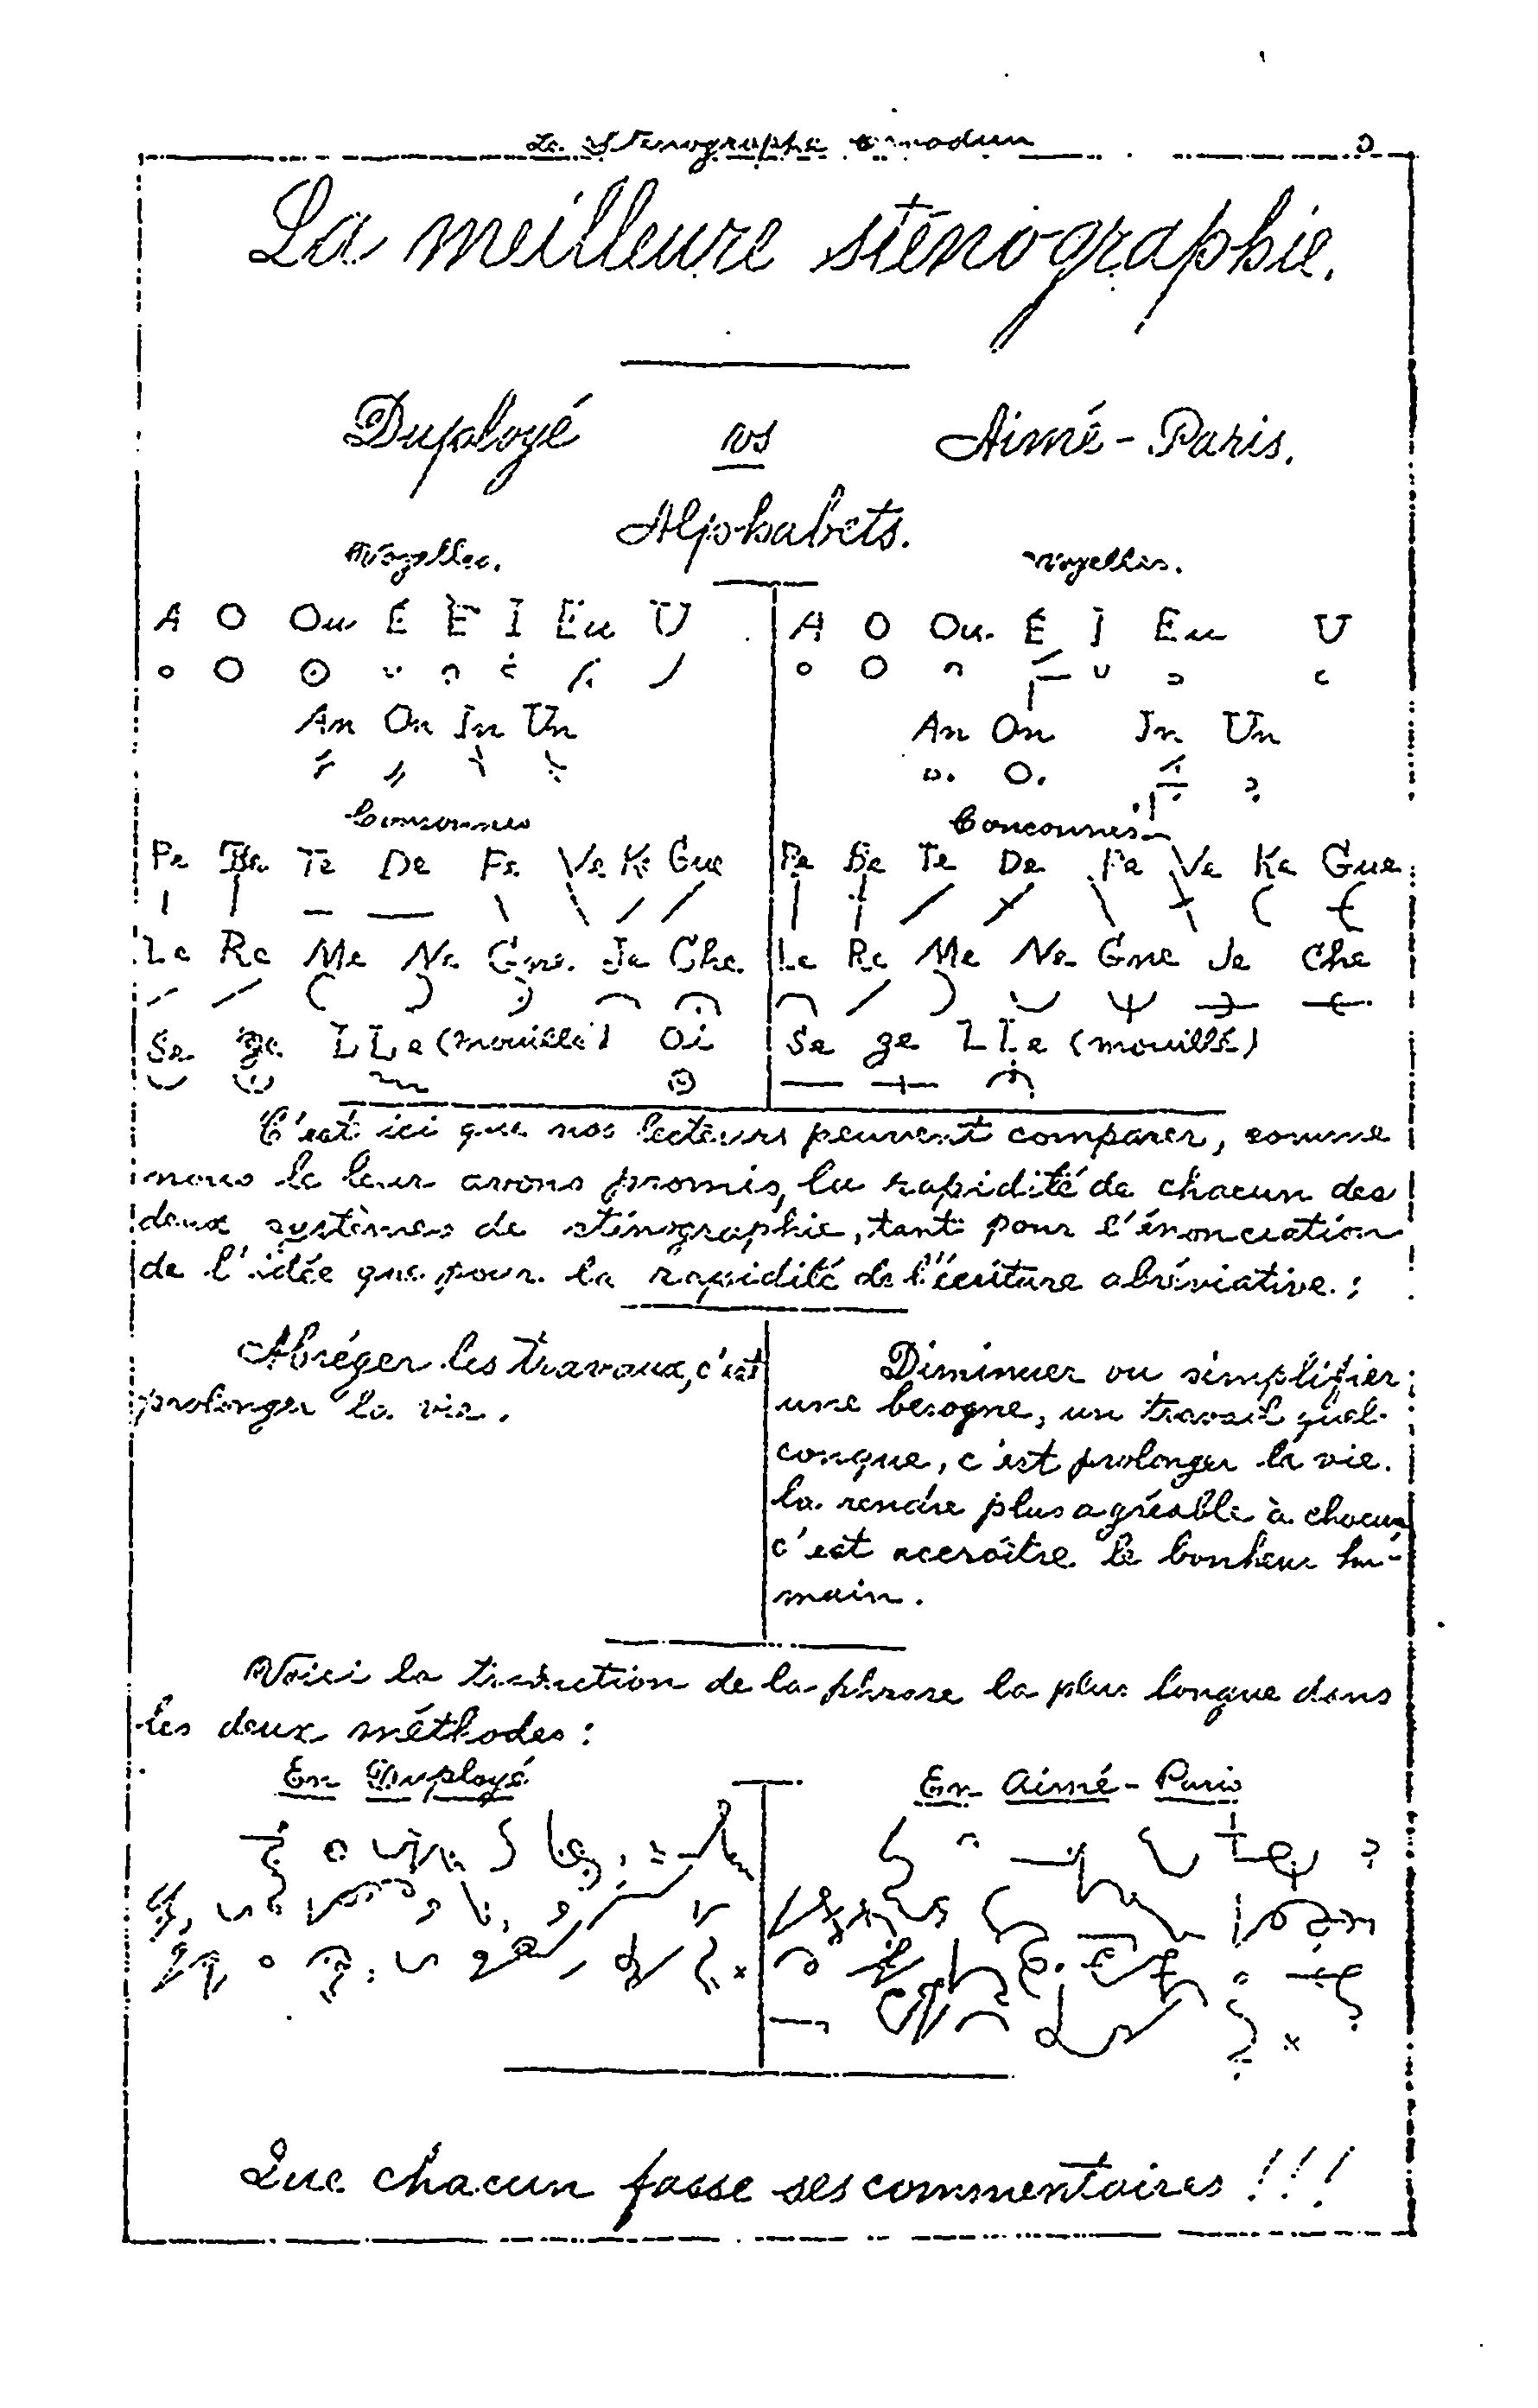 Le Sténographe canadien
La meilleure sténographie.
Duployé vs Aimé-Paris.
Alphabets.
Voyelles. Voyelles.
A O Ou É È I Eu U A O Ou. É I Eu U
An On In Un An On In Un
Consonnes Consonnes
Pe Be Te De Fe Ve Ke Gue Pe Be Te De Fe Ve Ke Gue
Le Re Me Ne Gne Je Che Le Re Me Ne Gne Je Che
Se Ze LLe (mouillé) Oi Se Ze LLe (mouillé)
C'est ici que nos lecteurs peuvent comparer, comme
nous le leur avons promis, la rapidité de chacun des
deux systèmes de sténographie, tant pour l'énonciation
de l'idée que pour la rapidité de l'écriture abréviative :
Abréger les travaux, c'est
prolonger la vie.
Diminuer ou simplifier
une besogne, un travail quel-
conque, c'est prolonger la vie.
la rendre plus agréable à chacun
c'est accroître le bonheur hu-
main.
Voici la traduction de la phrase la plus longue dans
les deux méthodes :
En Duployé En Aimé-Paris
Que chacun fasse ses commentaires !!!